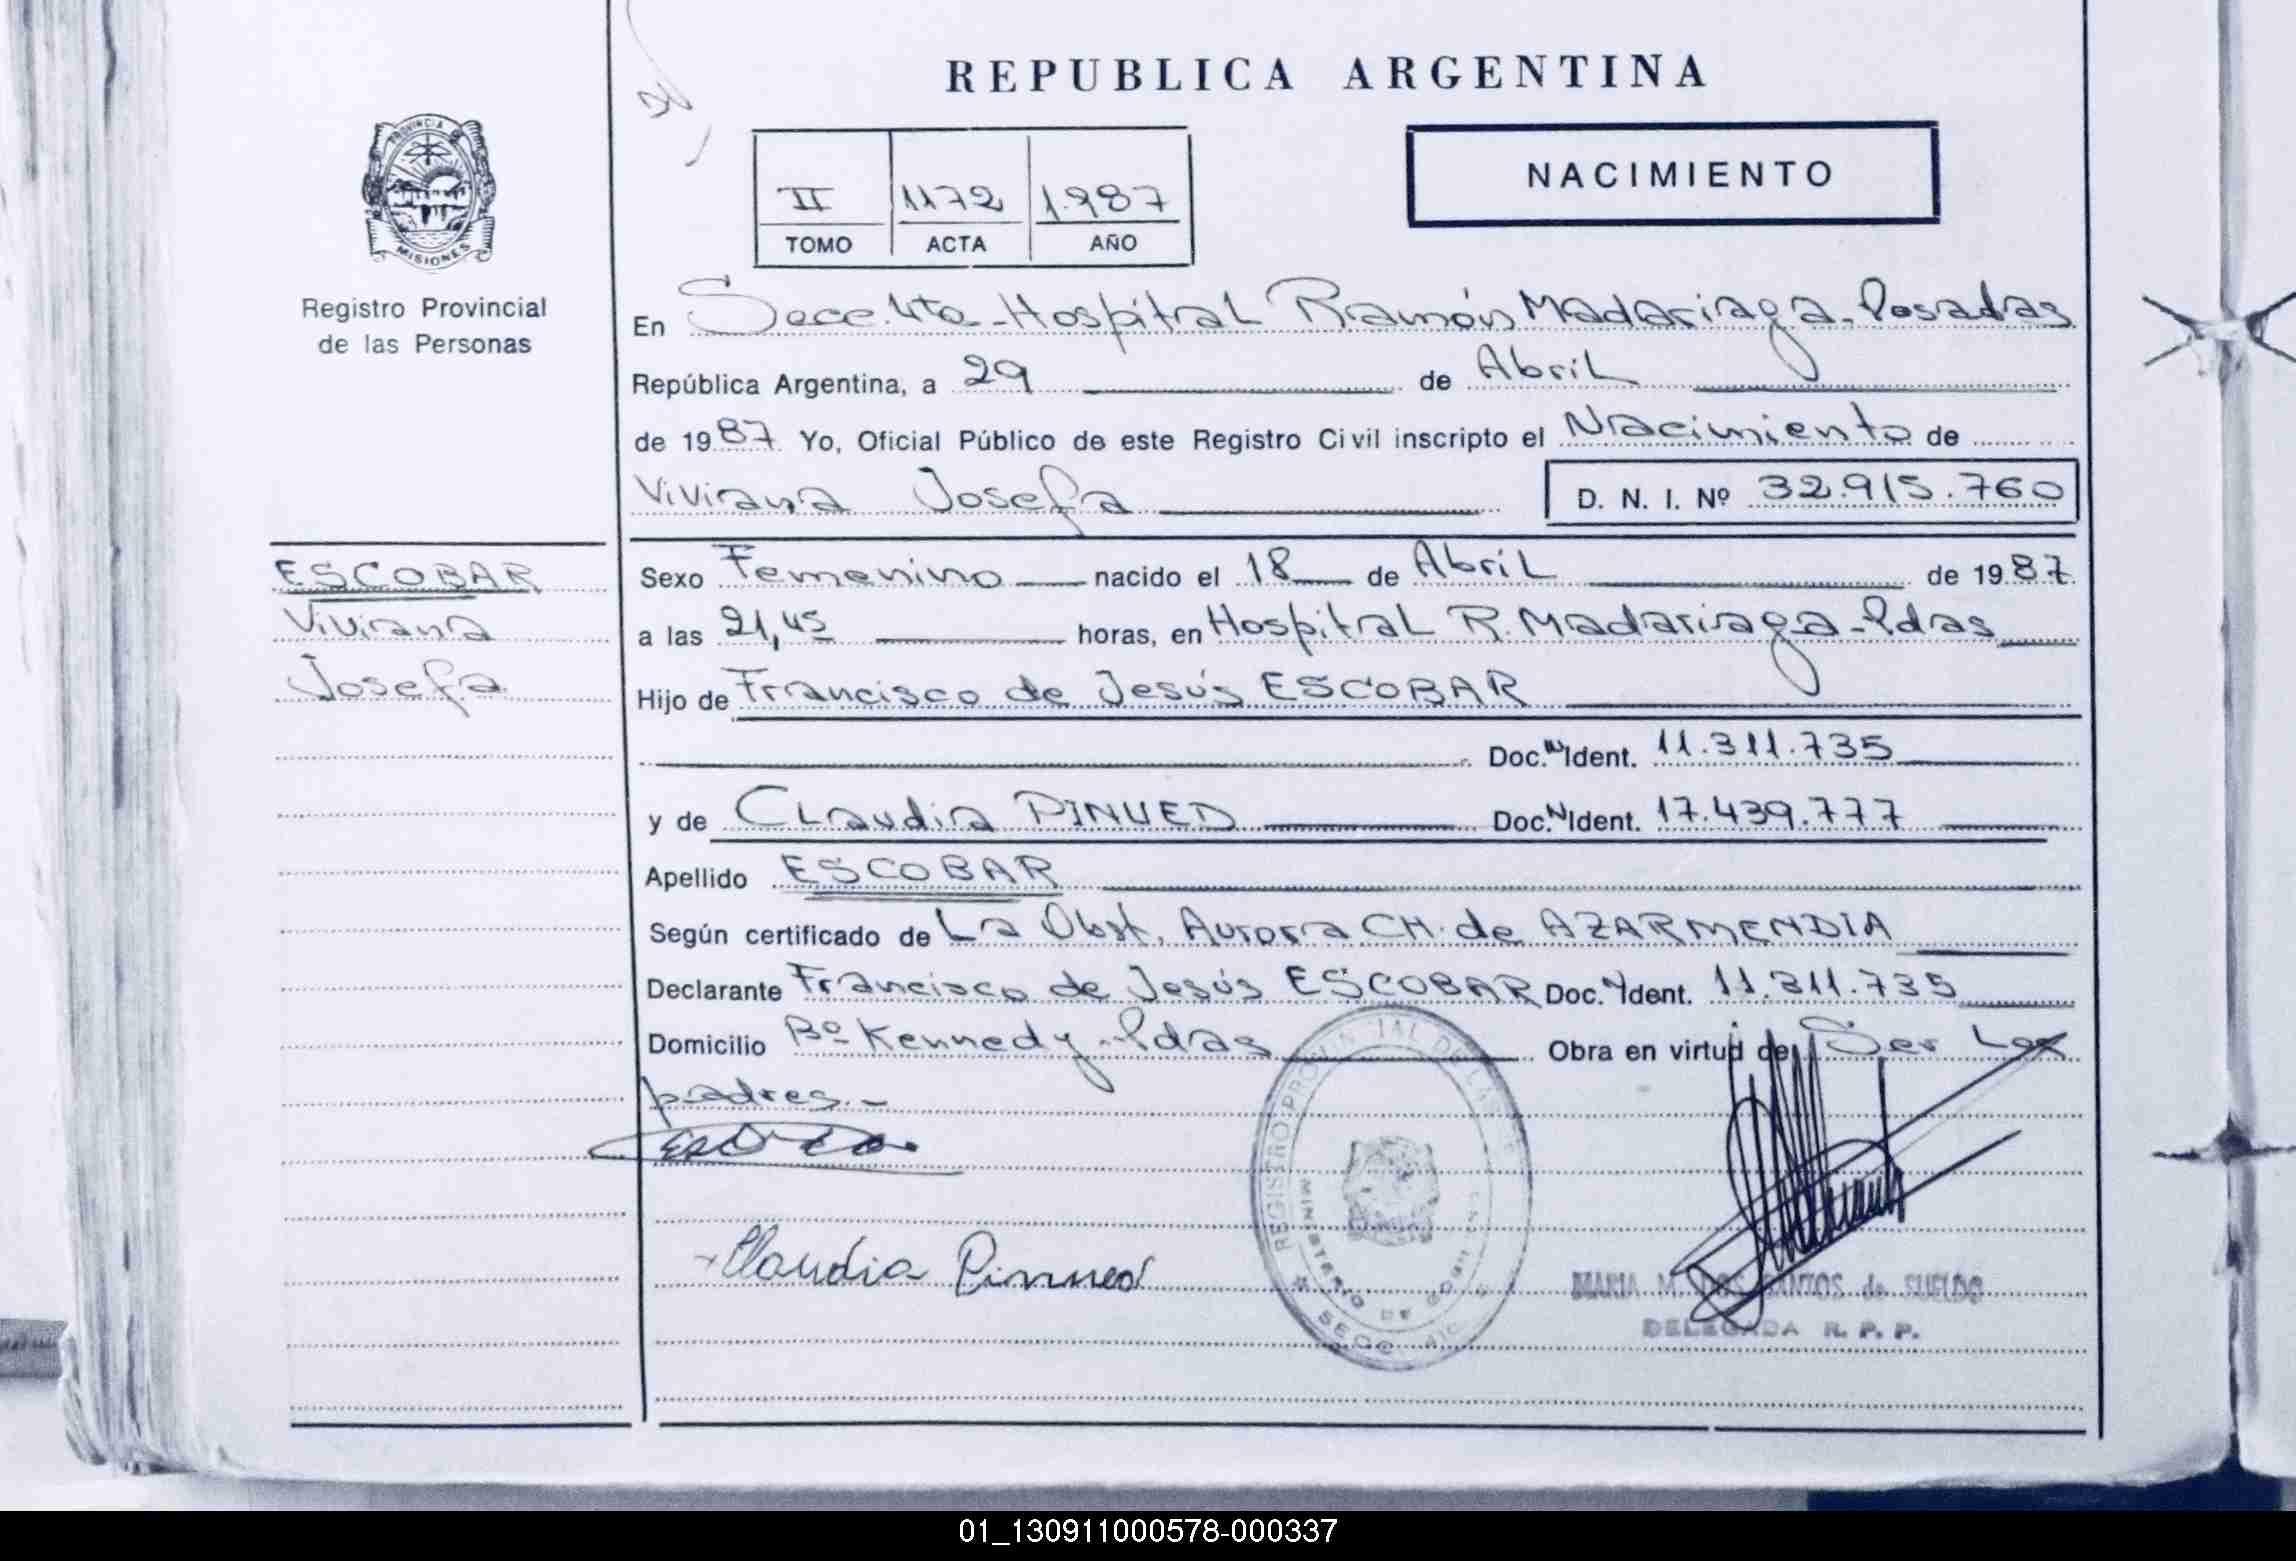 REPUBLICA ARGENTINA
PROVINCIA
MISIONES
Registro Provincial
de las Personas
II 1172 1.987
TOMO ACTA AÑO
NACIMIENTO
En Secc. 4ta - Hospital Ramón Madariaga - Posadas
República Argentina, a 29 de Abril
de 1987 Yo, Oficial Público de este Registro Civil inscripto el Nacimiento de
Viviana Josefa D. N. I. Nº 32.915.760
ESCOBAR
Viviana
Josefa
Sexo Femenino nacido el 18 de Abril de 1987
a las 21,45 horas, en Hospital R. Madariaga - Pdas
Hijo de Francisco de Jesús ESCOBAR
Doc. N Ident. 11.311.735
y de Claudia PINUED Doc. N Ident. 17.439.777
Apellido ESCOBAR
Según certificado de La Obst. Aurora CH. de AZARMENDIA
Declarante Francisco de Jesús ESCOBAR Doc. Ident. 11.311.735
Domicilio Bº Kennedy - Pdas Obra en virtud de Ser Los
padres.-
Claudia
REGISTRO PROVINCIAL DE LAS
MINISTERIO DE GOBIERNO
SECC.
MARIA M. DOS SANTOS de SUELDO
DELEGADA R. P. P.
01_130911000578-000337